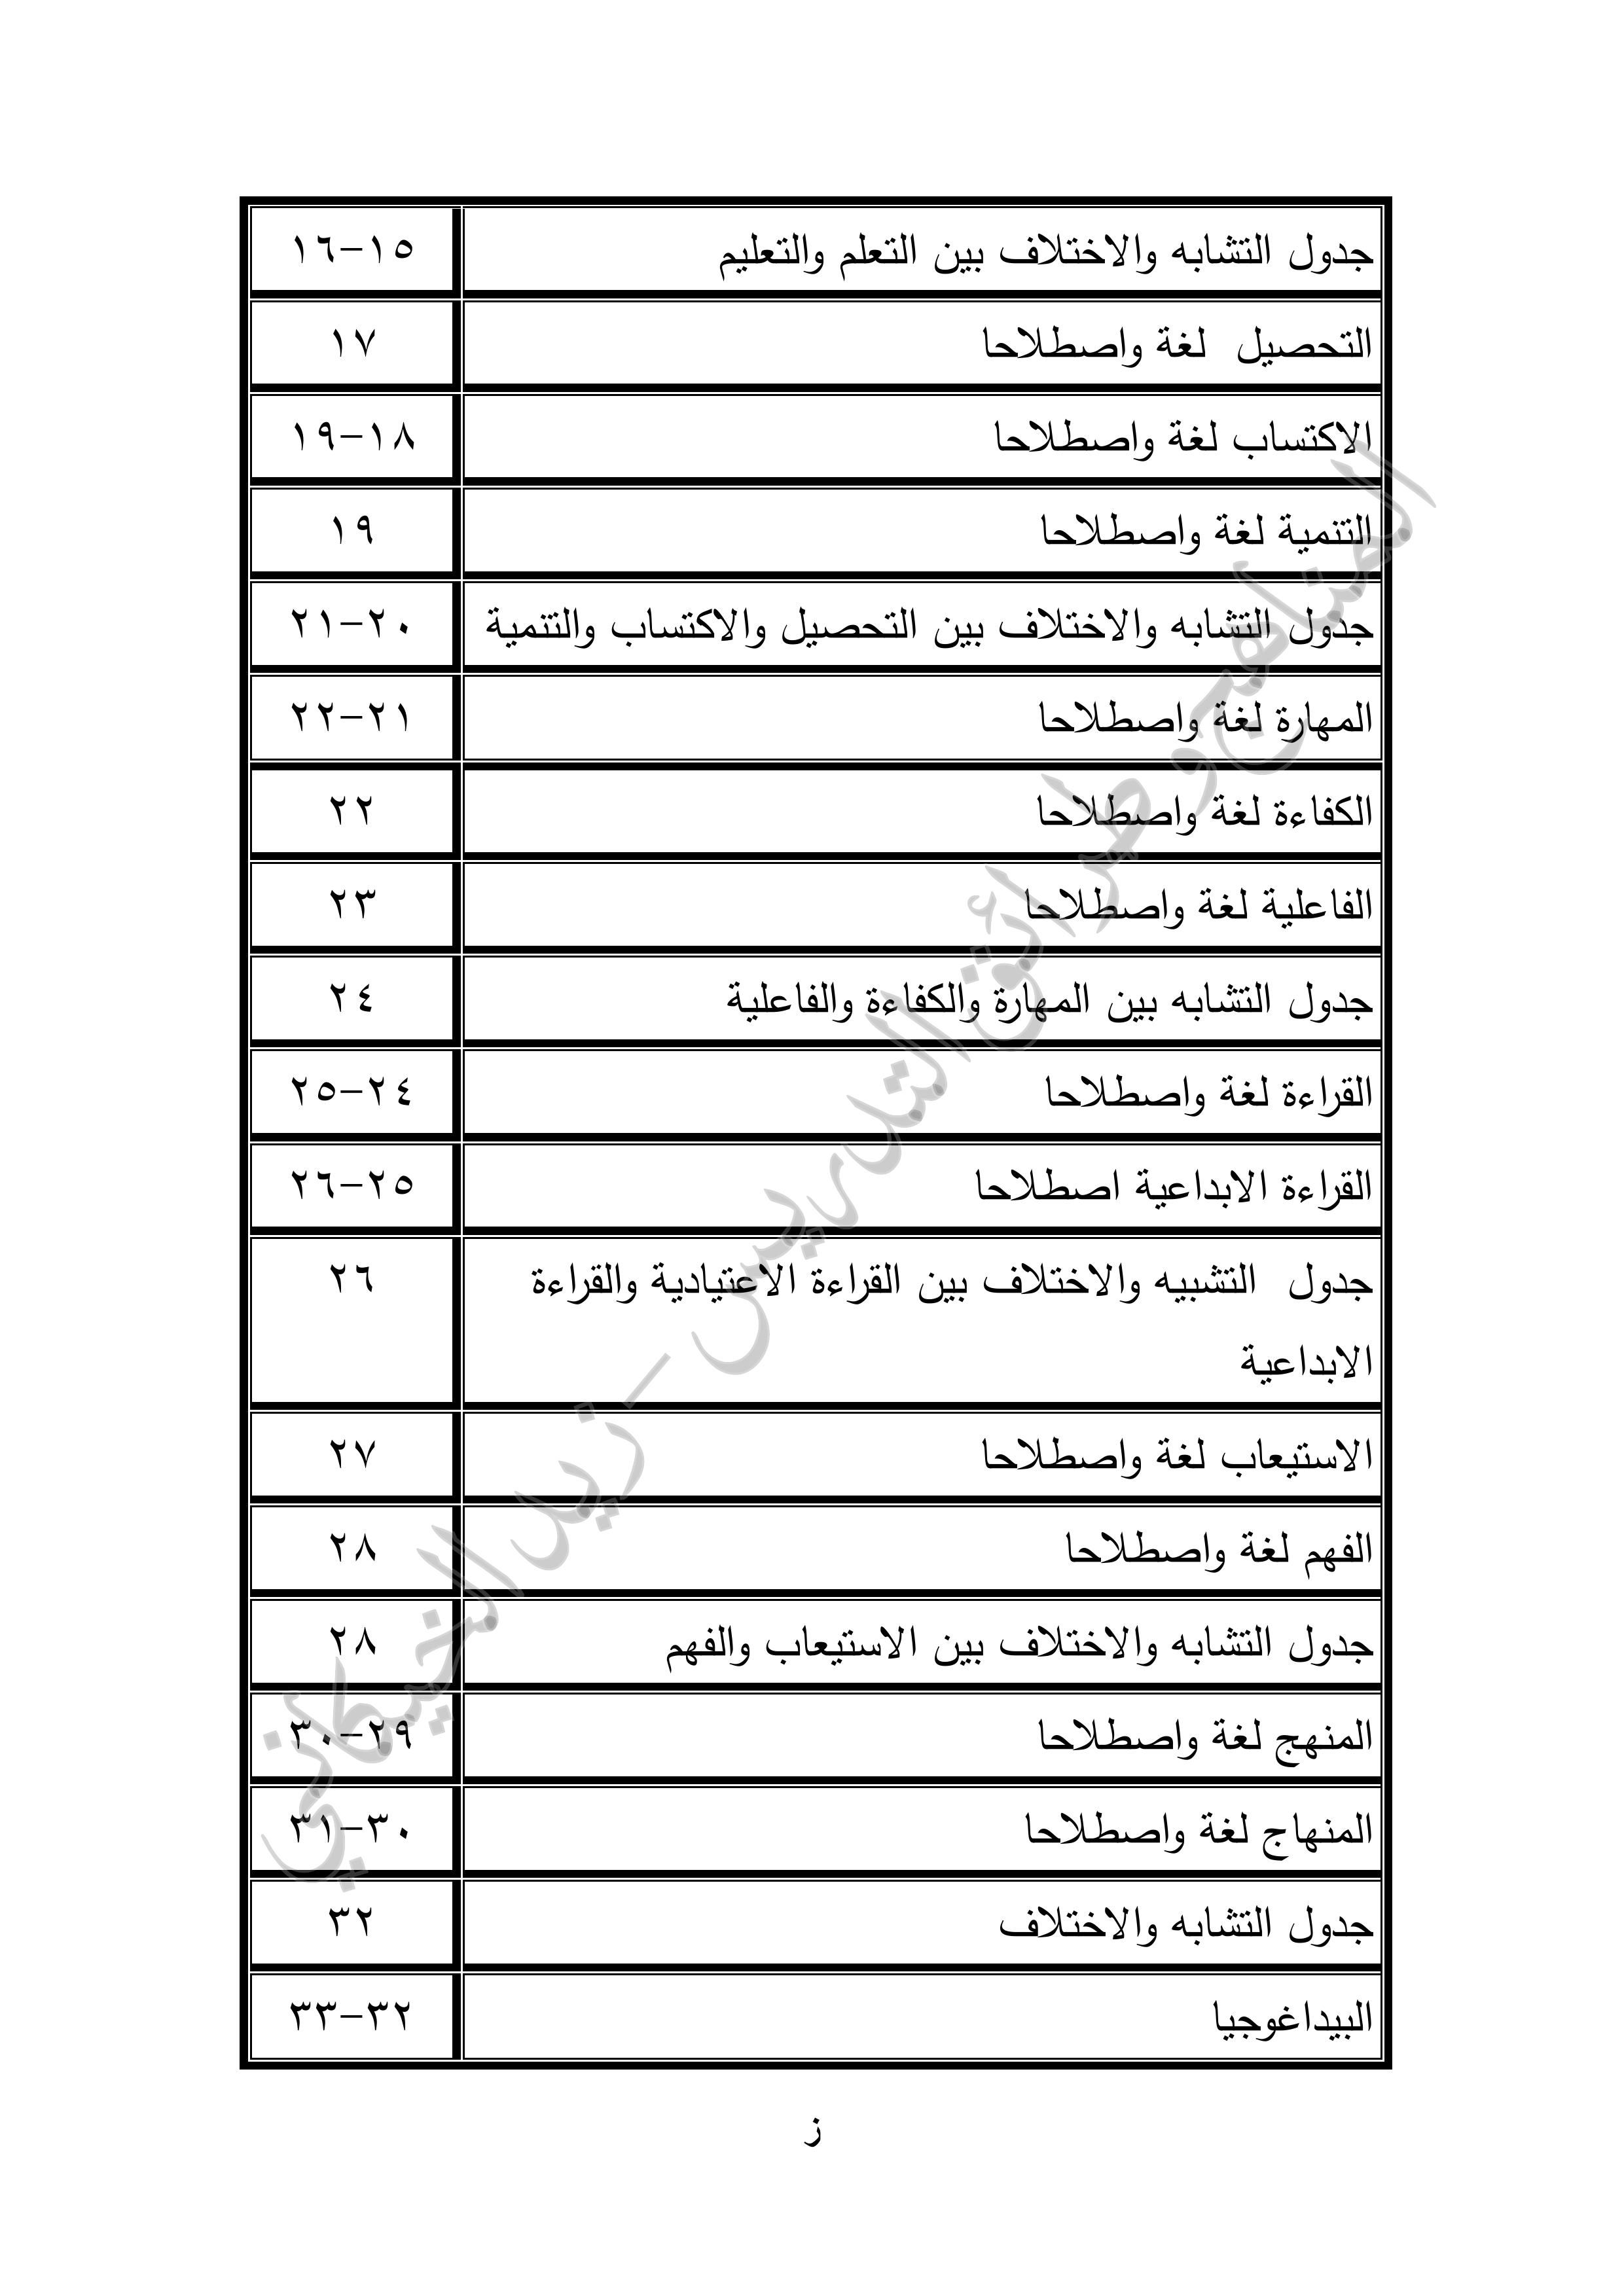 جدول التشابه والاختلاف بين التعلم والتعليم ١٥-١٦
التحصيل لغة واصطلاحا ١٧
الاكتساب لغة واصطلاحا ١٨-١٩
التنمية لغة واصطلاحا ١٩
جدول التشابه والاختلاف بين التحصيل والاكتساب والتنمية ٢٠-٢١
المهارة لغة واصطلاحا ٢١-٢٢
الكفاءة لغة واصطلاحا ٢٢
الفاعلية لغة واصطلاحا ٢٣
جدول التشابه بين المهارة والكفاءة والفاعلية ٢٤
القراءة لغة واصطلاحا ٢٤-٢٥
القراءة الابداعية اصطلاحا ٢٥-٢٦
جدول التشبيه والاختلاف بين القراءة الاعتيادية والقراءة ٢٦
الابداعية
الاستيعاب لغة واصطلاحا ٢٧
الفهم لغة واصطلاحا ٢٨
جدول التشابه والاختلاف بين الاستيعاب والفهم ٢٨
المنهج لغة واصطلاحا ٢٩-٣٠
المنهاج لغة واصطلاحا ٣٠-٣١
جدول التشابه والاختلاف ٣٢
البيداغوجيا ٣٢-٣٣
ز
المناهج وطرائق التدريس - زيد الخيكاني